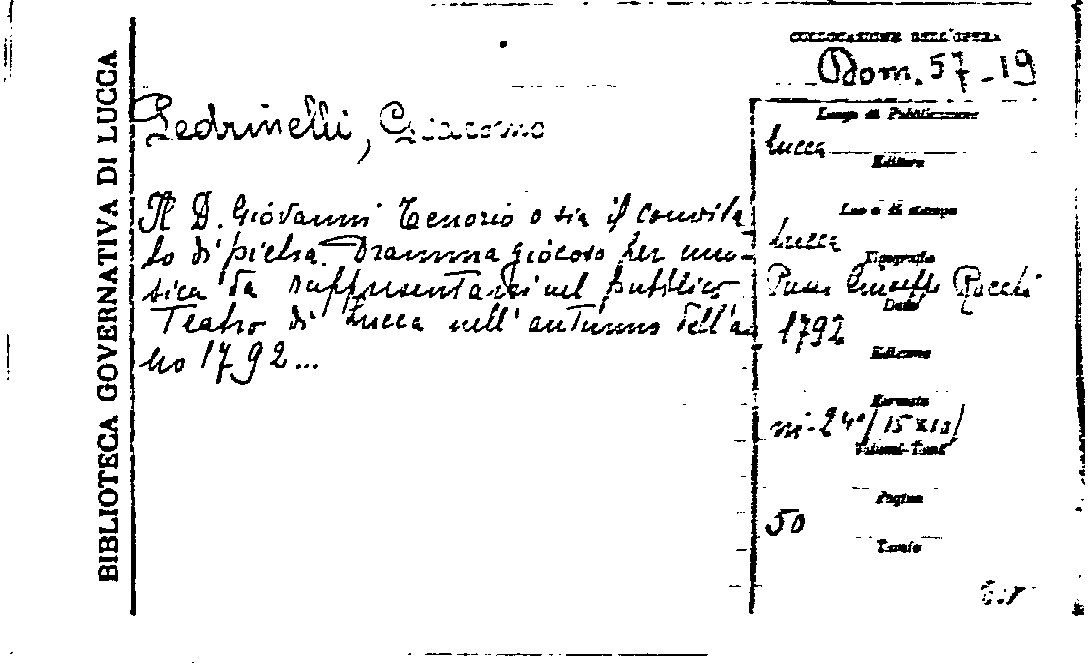 BIBLIOTECA GOVERNATIVA DI LUCCA
COLLOCAZIONE DELL'OPERA
Dom. 57-19
Pedrinelli, Giacomo
Il D. Giovanni Tenorio o sia il convita-
to di pietra. Dramma giocoso per mu-
sica da rappresentarsi nel pubblico
Teatro di Lucca nell'autunno dell'an-
no 1792...
Luogo di Pubblicazione
Lucca
Editore
Luogo di stampa
Lucca
Tipografia
Rocchi
Data
1792
Edizione
Formato
in-24°/15x10/
Volumi-Tomi
Pagine
50
Tavole